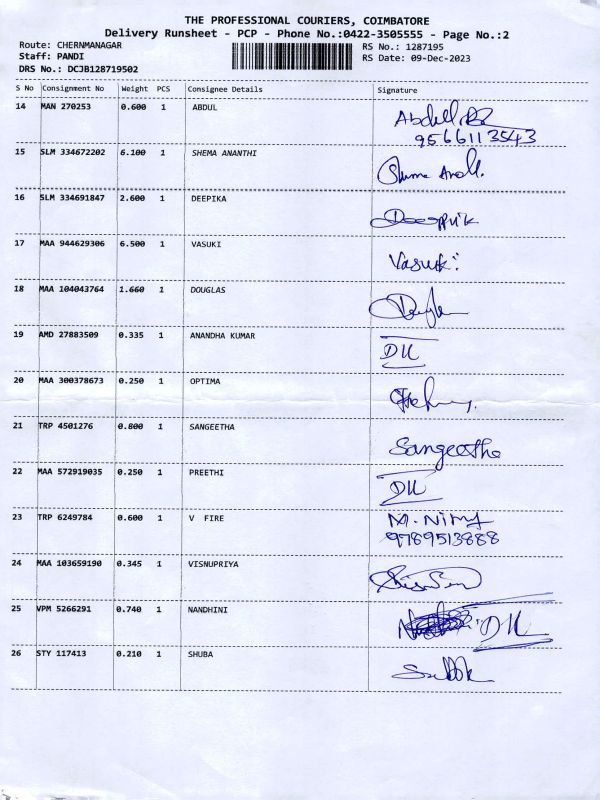 THE PROFESSIONAL COURIERS, COIMBATORE
Delivery Runsheet - PCP - Phone No.:0422-3505555 - Page No.:2
Route: CHERNMANAGAR
RS No.: 1287195
Staff: PANDI
RS Date: 09-Dec-2023
DRS No.: DCJB128719502
S No Consignment No Weight PCS Consignee Details Signature
14 MAN 270253 0.600 1 ABDUL Abdul
9566113543
15 SLM 334672202 6.100 1 SHEMA ANANTHI
16 SLM 334691847 2.600 1 DEEPIKA
17 MAA 944629306 6.500 1 VASUKI Vasuki
18 MAA 104043764 1.660 1 DOUGLAS
19 AMD 27883509 0.335 1 ANANDHA KUMAR DK
20 MAA 300378673 0.250 1 OPTIMA
21 TRP 4501276 0.800 1 SANGEETHA Sangeetha
22 MAA 572919035 0.250 1 PREETHI DK
23 TRP 6249784 0.600 1 V FIRE
9789513888
24 MAA 103659190 0.345 1 VISNUPRIYA
25 VPM 5266291 0.740 1 NANDHINI DK
26 STY 117413 0.210 1 SHUBA